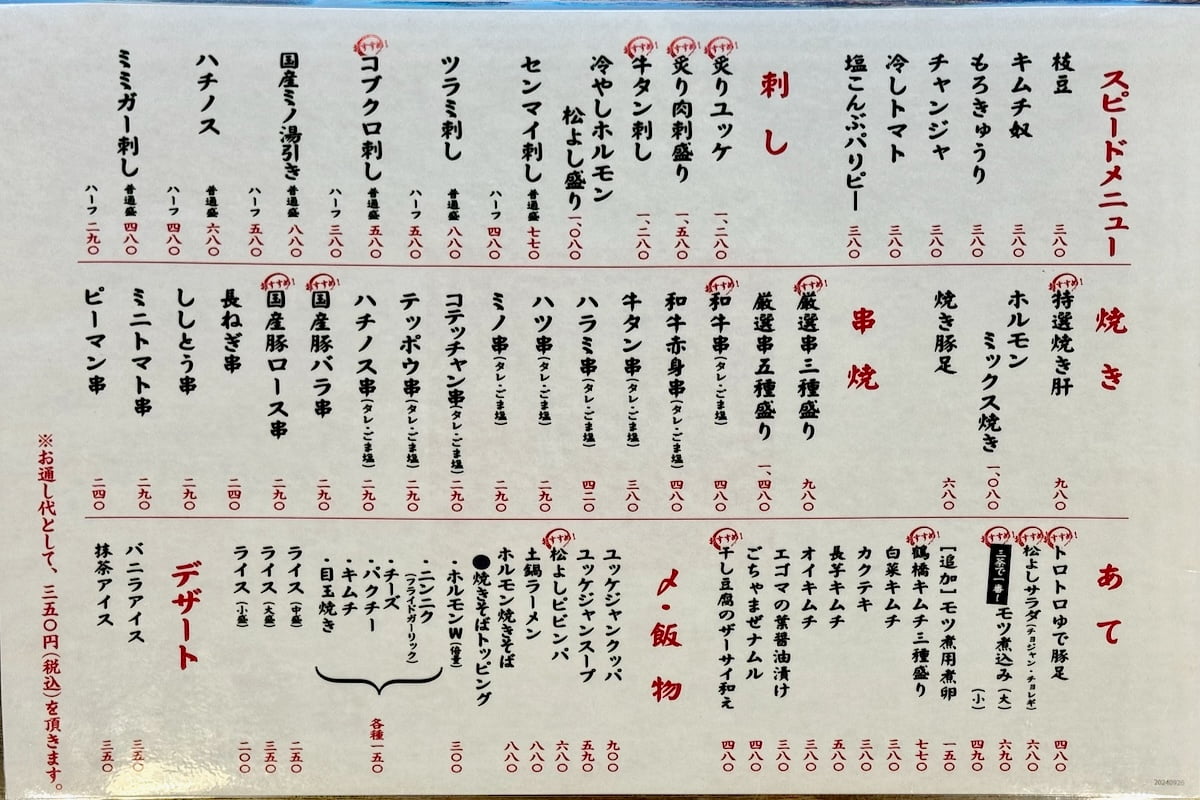 スピードメニュー
枝豆 三八〇
キムチ奴 三八〇
もろきゅうり 三八〇
チャンジャ 三八〇
冷しトマト 三八〇
塩こんぶパリピー 三八〇
刺し
おすすめ！
炙りユッケ 一、二八〇
おすすめ！
炙り肉刺盛り 一、五八〇
おすすめ！
牛タン刺し 一、二八〇
冷やしホルモン
松よし盛り 一、〇八〇
センマイ刺し 普通盛 七七〇
ハーフ 四八〇
ツラミ刺し 普通盛 八八〇
ハーフ 五八〇
おすすめ！
コブクロ刺し 普通盛 五八〇
ハーフ 三八〇
国産ミノ湯引き 普通盛 八八〇
ハーフ 五八〇
ハチノス 普通盛 六八〇
ハーフ 四八〇
ミミガー刺し 普通盛 四八〇
ハーフ 二九〇
焼き
おすすめ！
特選焼き肝 九八〇
ホルモン
ミックス焼き 一、〇八〇
焼き豚足 六八〇
串焼
おすすめ！
厳選串三種盛り 九八〇
厳選串五種盛り 一、四八〇
おすすめ！
和牛串(タレ・ごま塩) 四八〇
和牛赤身串(タレ・ごま塩) 四八〇
牛タン串(タレ・ごま塩) 三八〇
ハラミ串(タレ・ごま塩) 四二〇
ハツ串(タレ・ごま塩) 二九〇
ミノ串(タレ・ごま塩) 二九〇
コテッチャン串(タレ・ごま塩) 二九〇
テッポウ串(タレ・ごま塩) 二九〇
ハチノス串(タレ・ごま塩) 二九〇
おすすめ！
国産豚バラ串 二九〇
おすすめ！
国産豚ロース串 二九〇
長ねぎ串 二四〇
ししとう串 二九〇
ミニトマト串 二九〇
ピーマン串 二四〇
あて
おすすめ！
トロトロゆで豚足 四八〇
おすすめ！
松よしサラダ(チョジャン・チョレギ) 六八〇
おすすめ！
三茶で一番！ モツ煮込み(大) 六九〇
(小) 四九〇
[追加]モツ煮用煮卵 一五〇
おすすめ！
鶴橋キムチ三種盛り 七七〇
白菜キムチ 三八〇
カクテキ 三八〇
長芋キムチ 五八〇
オイキムチ 三八〇
エゴマの葉醤油漬け 三八〇
ごちゃまぜナムル 四八〇
おすすめ！
干し豆腐のザーサイ和え 四八〇
〆・飯物
ユッケジャンクッパ 九〇〇
ユッケジャンスープ 五九〇
おすすめ！
松よしビビンパ 六八〇
土鍋ラーメン 八八〇
ホルモン焼きそば 八八〇
●焼きそばトッピング
・ホルモンW(倍量) 三〇〇
・ニンニク
(フライドガーリック)
・チーズ
・パクチー
・キムチ
・目玉焼き
各種一五〇
ライス(中盛) 二五〇
ライス(大盛) 三五〇
ライス(小盛) 二〇〇
デザート
バニラアイス 三五〇
抹茶アイス 三五〇
※お通し代として、三五〇円(税込)を頂きます。
20240926